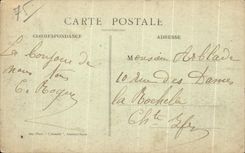 75
CARTE POSTALE
CORRESPONDANCE
ADRESSE
Les bonjours de
nous tous
C. Roger
Monsieur
10 rue des Dames
La Rochelle
Chte Infre